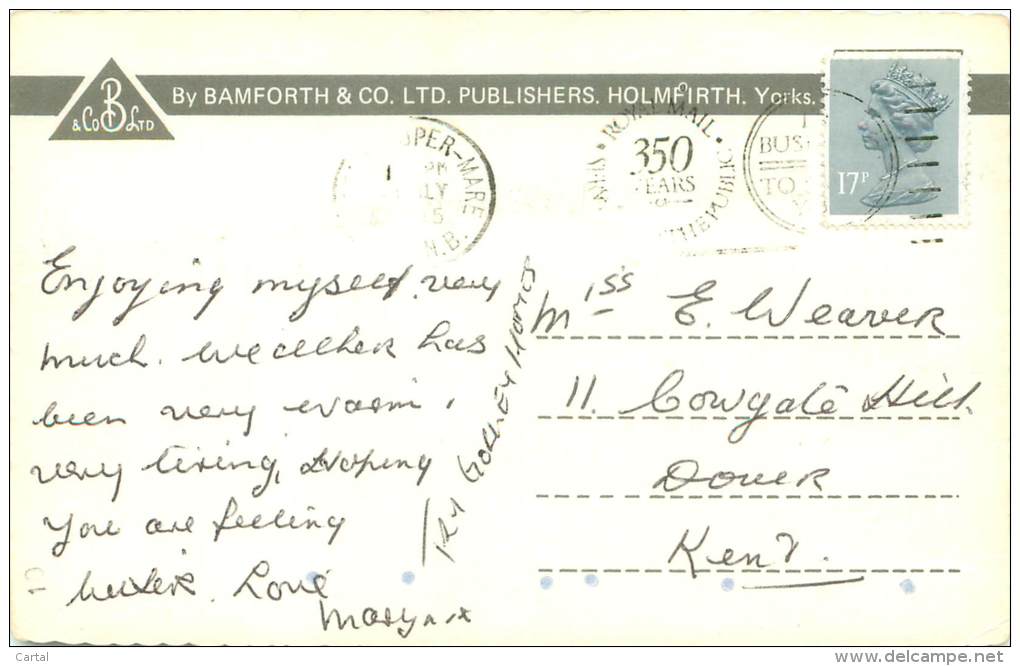 B
& Co LTD
By BAMFORTH & CO. LTD. PUBLISHERS. HOLMFIRTH. Yorks.
PER-MARE
PM
LY
5
ROYAL MAIL
350
YEARS
THE PUBLIC
BUS
TO
17P
Enjoying myself very
much. weather has
been very warm,
very tiring, Hoping
you are feeling
better. Love
Mary x x
Miss E. Weaver
11. Cowgate Hill.
Dover
Kent.
Cartal
delcampe.net